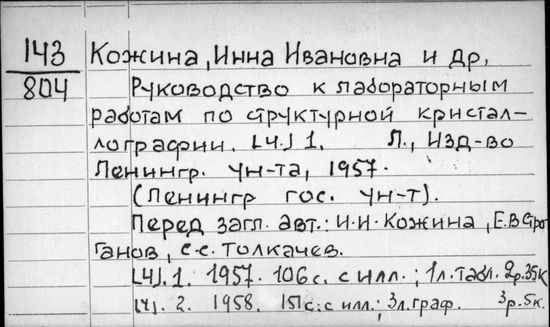 143
804
Кожина, Инна Ивановна и др.
Руководство к лабораторным
работам по структурной кристал-
лографии. [Ч.] 1. Л., Изд-во
Ленингр. ун-та, 1957.
(Ленингр гос. ун-т).
Перед загл. авт.: И.И. Кожина, Е.В Стро
ганов, С.С. Толкачев.
[Ч]. 1. 1957. 106 с. с илл.; 1 л. табл. 2р.35к
[Ч]. 2. 1958. 151 с: с илл.; 3 л. граф. 3р.5к.